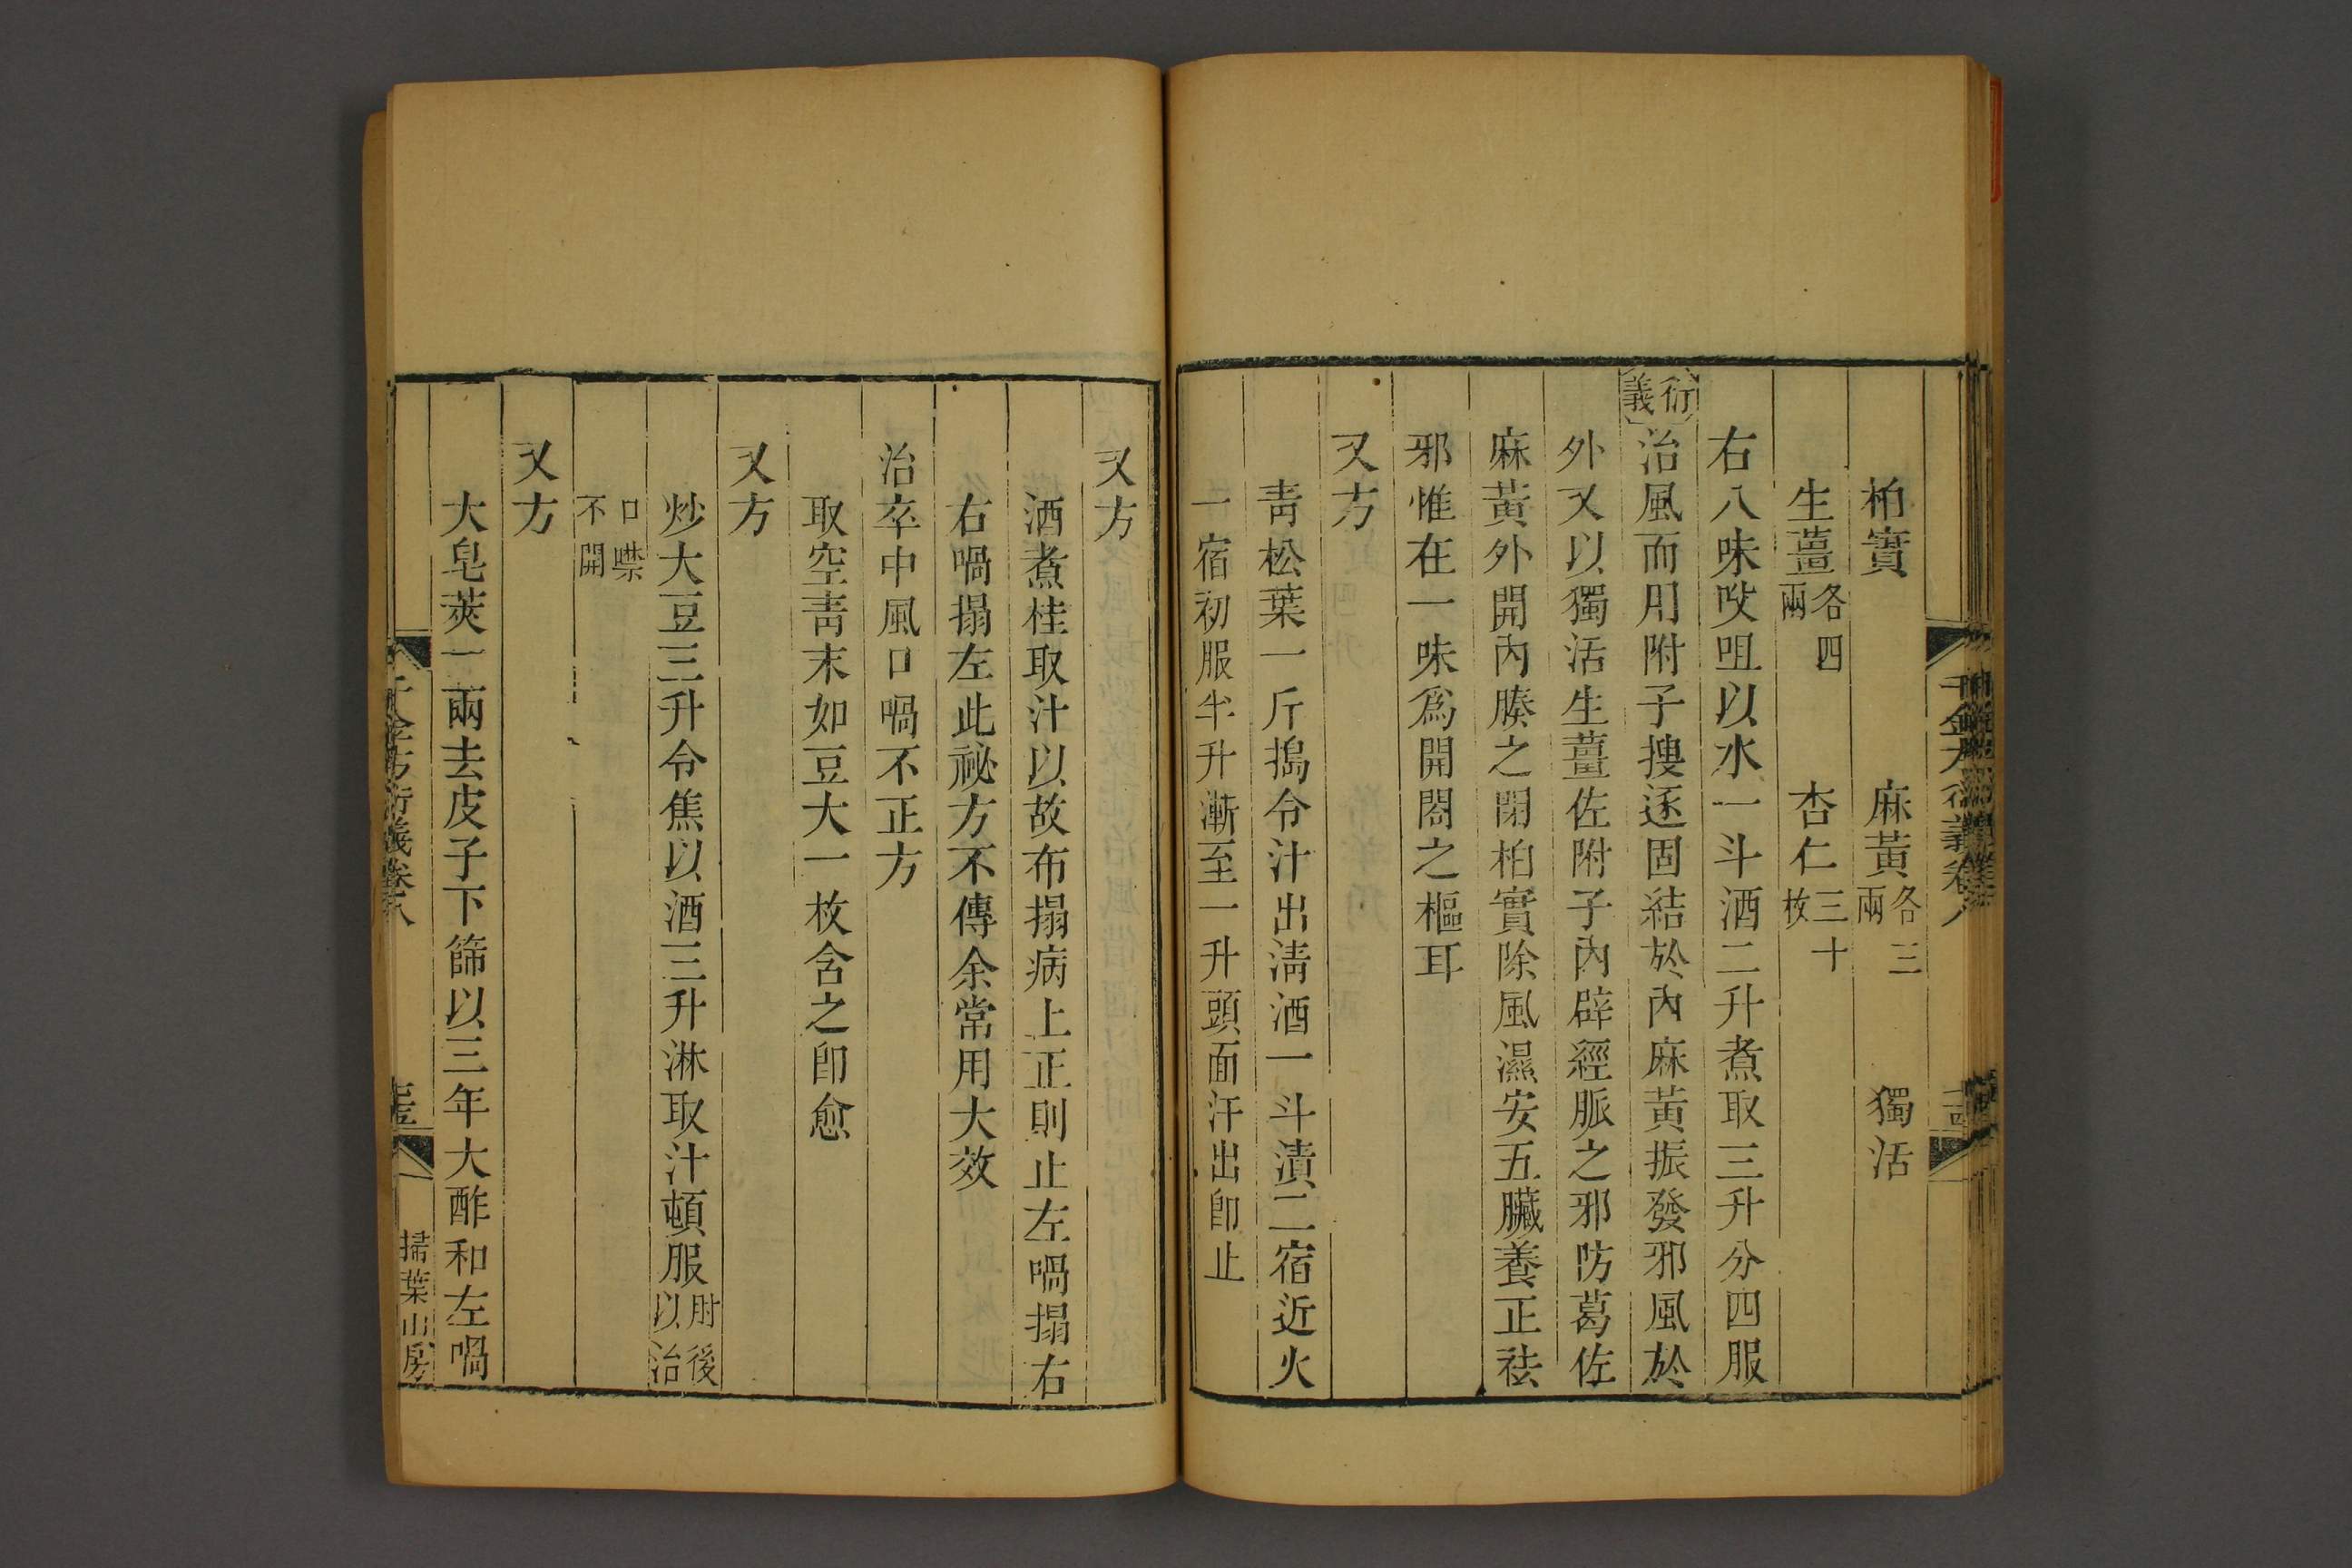 柏實　麻黃各三兩　獨活
生薑各四兩　杏仁三十枚
右八味㕮咀以水一斗酒二升煮取三升分四服
衍義治風而用附子搜逐固結於內麻黃振發邪風於
外又以獨活生薑佐附子內辟經脈之邪防葛佐
麻黃外開內腠之閉柏實除風濕安五臟養正祛
邪惟在一味爲開闔之樞耳
又方
青松葉一斤搗令汁出淸酒一斗漬二宿近火
一宿初服半升漸至一升頭面汗出卽止
又方
酒煮桂取汁以故布搨病上正則止左喎搨右
右喎搨左此祕方不傳余常用大效
治卒中風口喎不正方
取空靑末如豆大一枚含之卽愈
又方
炒大豆三升令焦以酒三升淋取汁頓服肘後以治
口噤不開
又方
大皂莢一兩去皮子下篩以三年大酢和左喎
千金方衍義卷八
掃葉山房